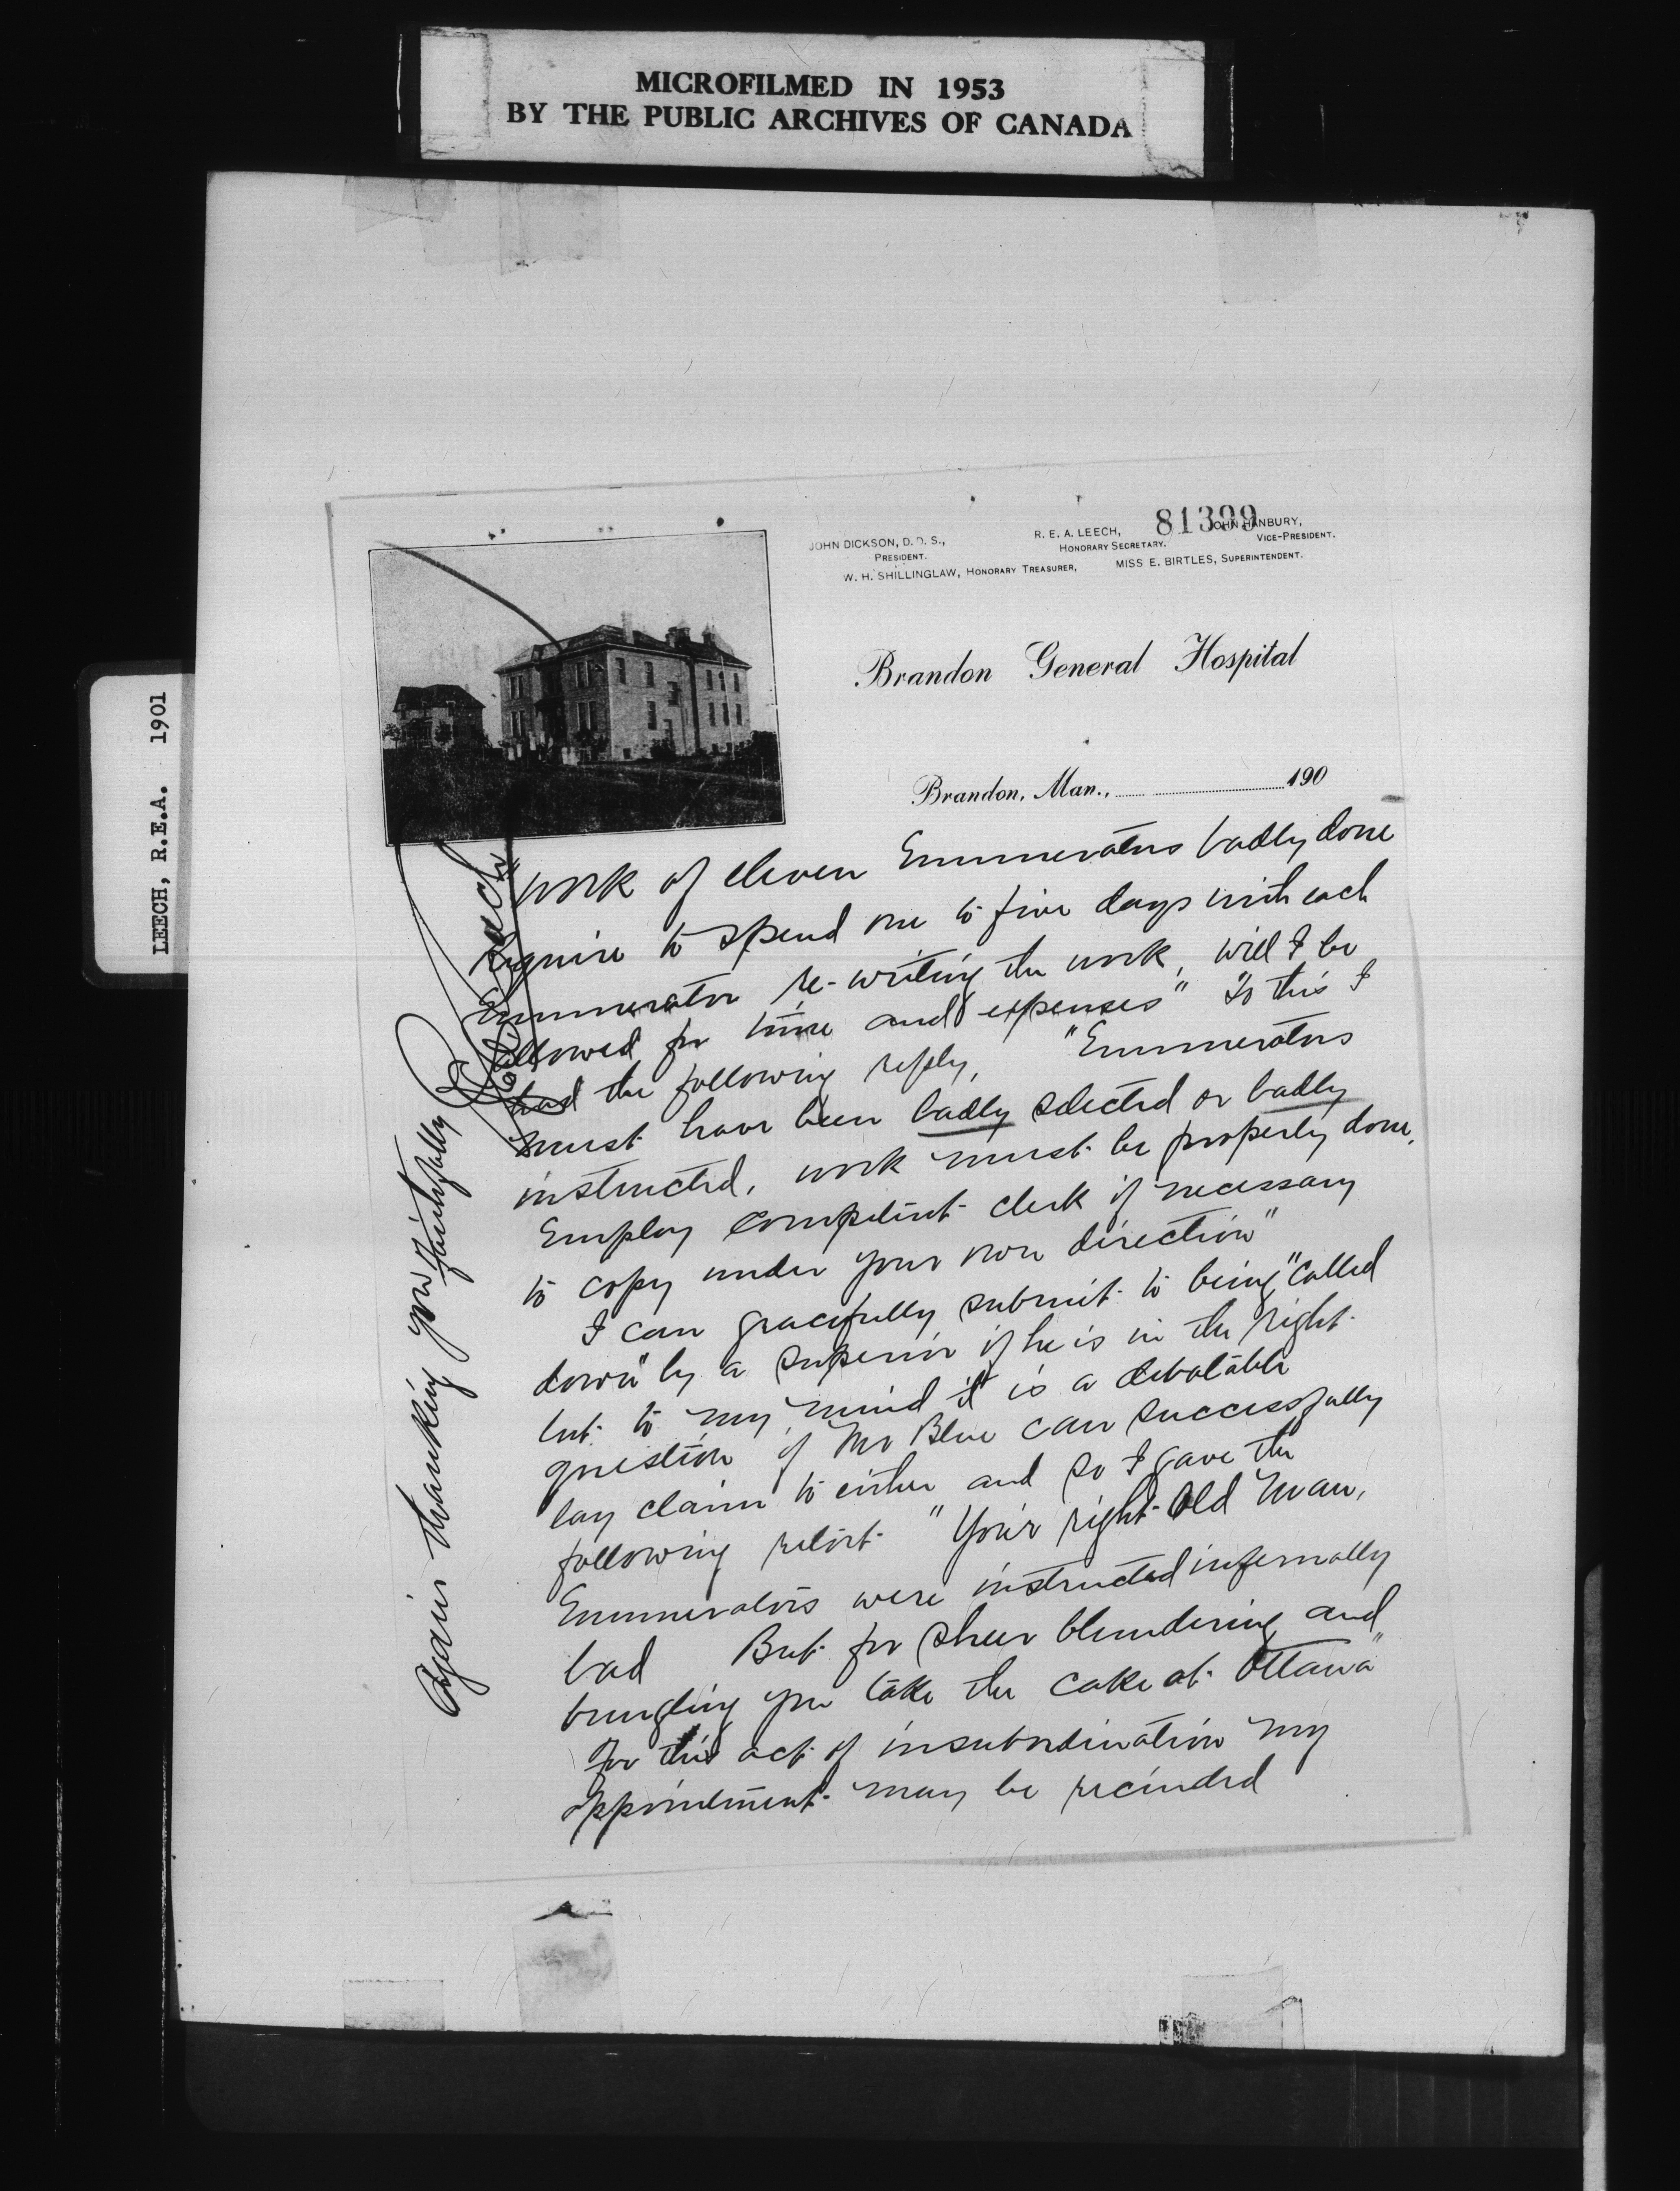 MICROFILMED IN 1953
BY THE PUBLIC ARCHIVES OF CANADA
LEECH, R.E.A. 1901
81399
JOHN DICKSON, D.D.S.,
PRESIDENT.
R. E. A. LEECH,
HONORARY SECRETARY.
JOHN HANBURY,
VICE-PRESIDENT.
W. H. SHILLINGLAW, HONORARY TREASURER,
MISS E. BIRTLES, SUPERINTENDENT.
Brandon General Hospital
Brandon, Man., 190
"work of eleven Enumerators badly done
Require to spend one to five days with each
Enumerator re-writing the work, will I be
allowed for time and expenses" To this I
had the following reply, "Enumerators
must have been badly selected or badly
instructed, work must be properly done,
Employ competent clerk if necessary
to copy under your own direction"
I can gracefully submit to being "called
down" by a superior if he is in the right
but to my mind it is a debatable
question if Mr Blue can successfully
lay claim to either and so I gave the
following retort "Your right Old Man,
Enumerators were instructed infernally
bad But for sheer blundering and
bungling you take the cake at Ottawa"
For this act of insubordination my
appointment may be recinded
Again thanking you
Faithfully
Leech